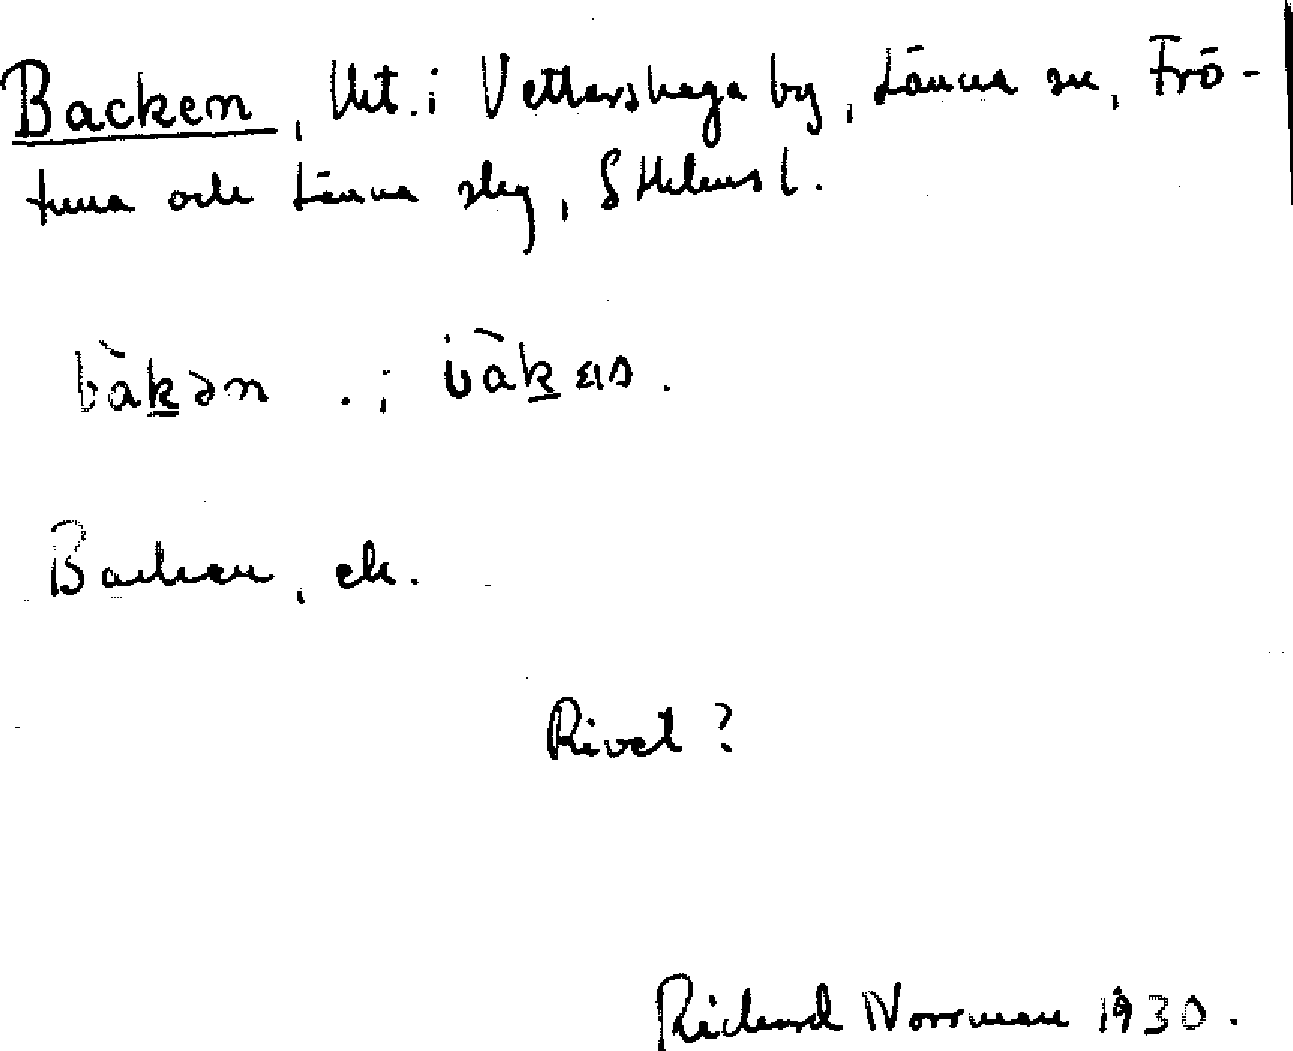 Backen, lht. i Vettershaga by, Länna sn, Frö-
tuna och Länna slg, Sthlms l.
bàkən . i bàkas.
Backen, ek.
Rivet?
Richard Norrman 1930.